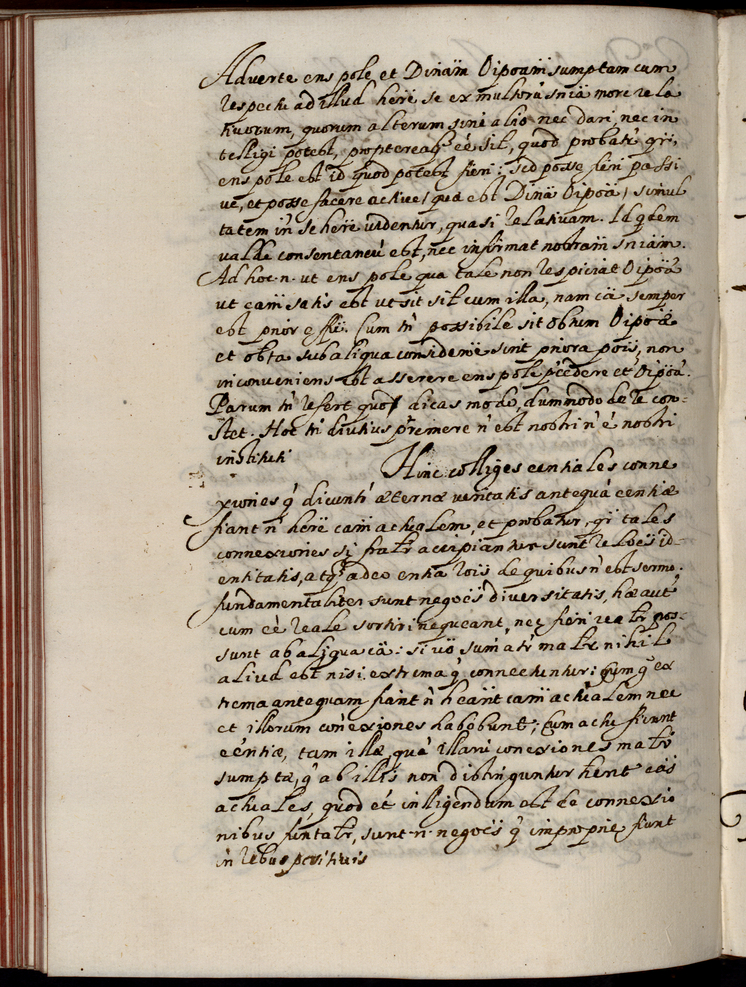 Adverte ens pole, et Divinam Oipoam sumptam cum
respectu ad illud herē se ex multorū sniā more rela
tivorum, quorum alterum sine alio nec dari, nec in
telligi potest, proptereaq̄ eē sil, quod probatr qr,
ens pole est id quod potest fieri: sed posse fieri passi
vē, et posse facere active / quae est Dina Oipoā / simul
tatem in se herē videntur, quasi relativam. Id qdem
valde consentaneū est, nec infirmat nostram sniām.
Ad hoc .n. ut ens pole qua tale non respiciat Oipoā
ut cām satis est ut sit sil cum illa, nam cā semper
est prior effū. Cum tn possibile sit obtum Oipoae
et obta sub aliqua consideroē sint priora pois, non
inconveniens est asserere ens pole p̄cedere et Oipoā.
Parum tn refert quo dicas modo, dummodo de re con-
stet. Hoc tn diutius premere n est nostri n ē nostri
instituti Hinc colliges eentiales conne
xiones q̄ dicuntr aeternae veritatis antequā eentiae
fiant n herē cām actualem, et probatur, qr tales
connexiones si fralr accipiantur sunt reloēs id-
entitatis, atq̄ adeo entia rois de quibus n est sermo.
fundamentaliter sunt negoēs diversitatis, hae autē
cum eē reale sortiri nequeant, nec fieri realr pos-
sunt ab aliqua cā: si vō sumātr matr nihil
aliud est nisi extrema q̄ connectuntur; cum q̄ ex
trema antequam fiant n heānt cām actualem nec
et illorum conexiones habebunt; cum actu fiunt
eentiae, tam illae, quā illarū conexiones matr
sumptae, q̄ ab illis non distinguntur hent cās
actuales, quod et inlligendum est de connexio
nibus funtalr, sunt .n. negoēs q̄ impropriē fiunt
in rebus positivis